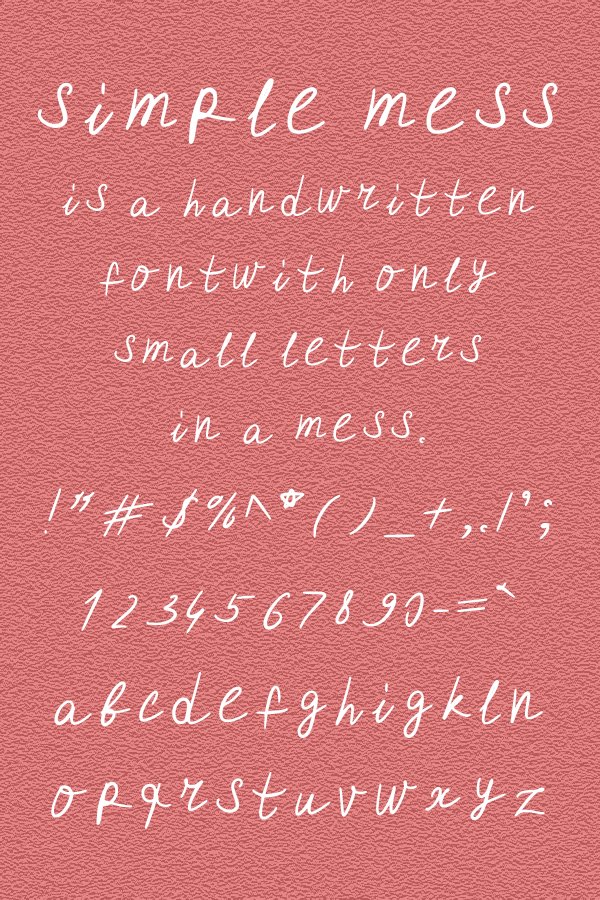 simple mess
is a handwritten
fontwith only
small letters
in a mess.
!"#$%^*()_+,./';
1234567890-=`
abcdefghigkln
opqrstuvwxyz